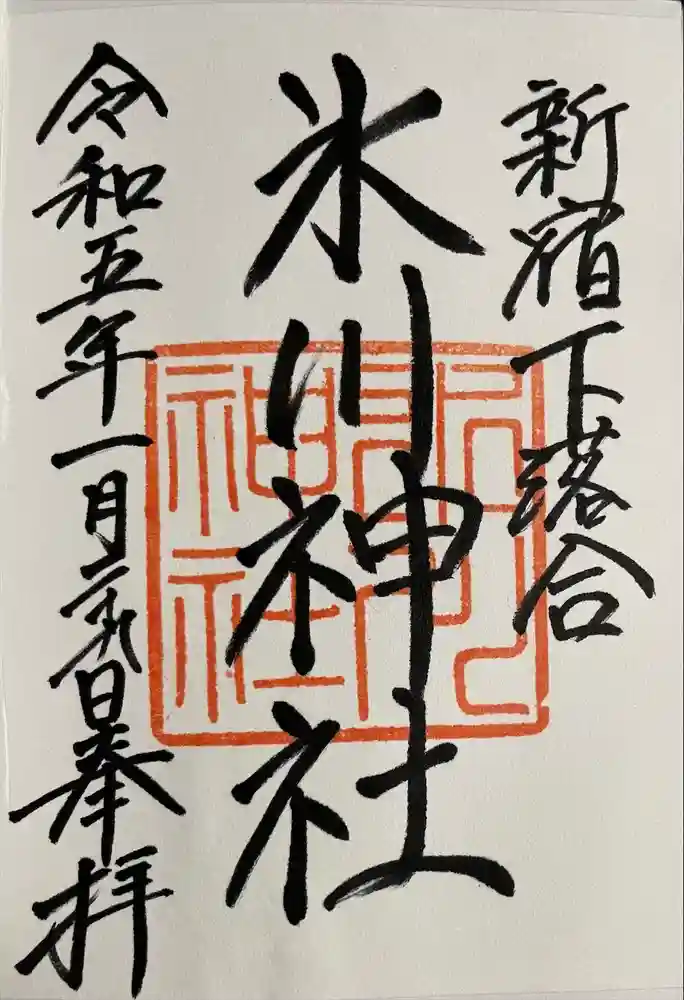 新宿下落合
氷川神社
令和五年一月二十九日奉拝